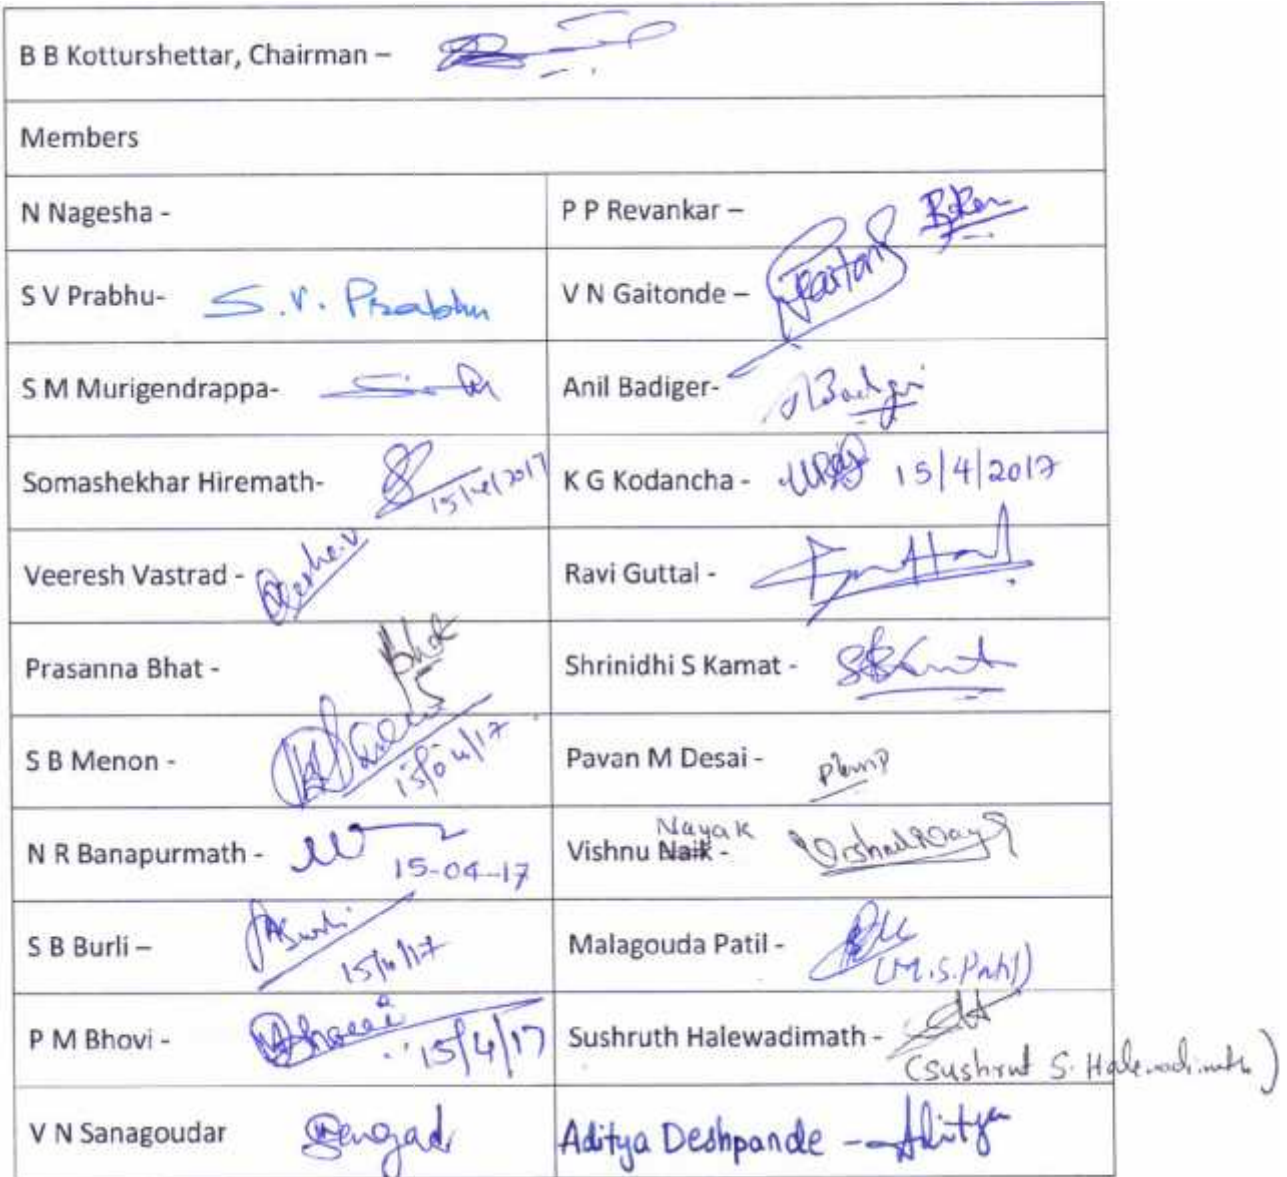 B B Kotturshettar, Chairman –
Members
N Nagesha -
P P Revankar –
S V Prabhu- S.V. Prabhu
V N Gaitonde –
S M Murigendrappa-
Anil Badiger-
Somashekhar Hiremath- 15/4/2017
K G Kodancha - 15/4/2017
Veeresh Vastrad -
Ravi Guttal -
Prasanna Bhat - Bhat
Shrinidhi S Kamat -
S B Menon - 15/04/17
Pavan M Desai -
N R Banapurmath - 15-04-17
Nayak
Vishnu Naik -
S B Burli – 15/4/17
Malagouda Patil -
(M.S.Patil)
P M Bhovi - 15/4/17
Sushruth Halewadimath -
(Sushrut S. Halewadimath)
V N Sanagoudar
Aditya Deshpande – Aditya